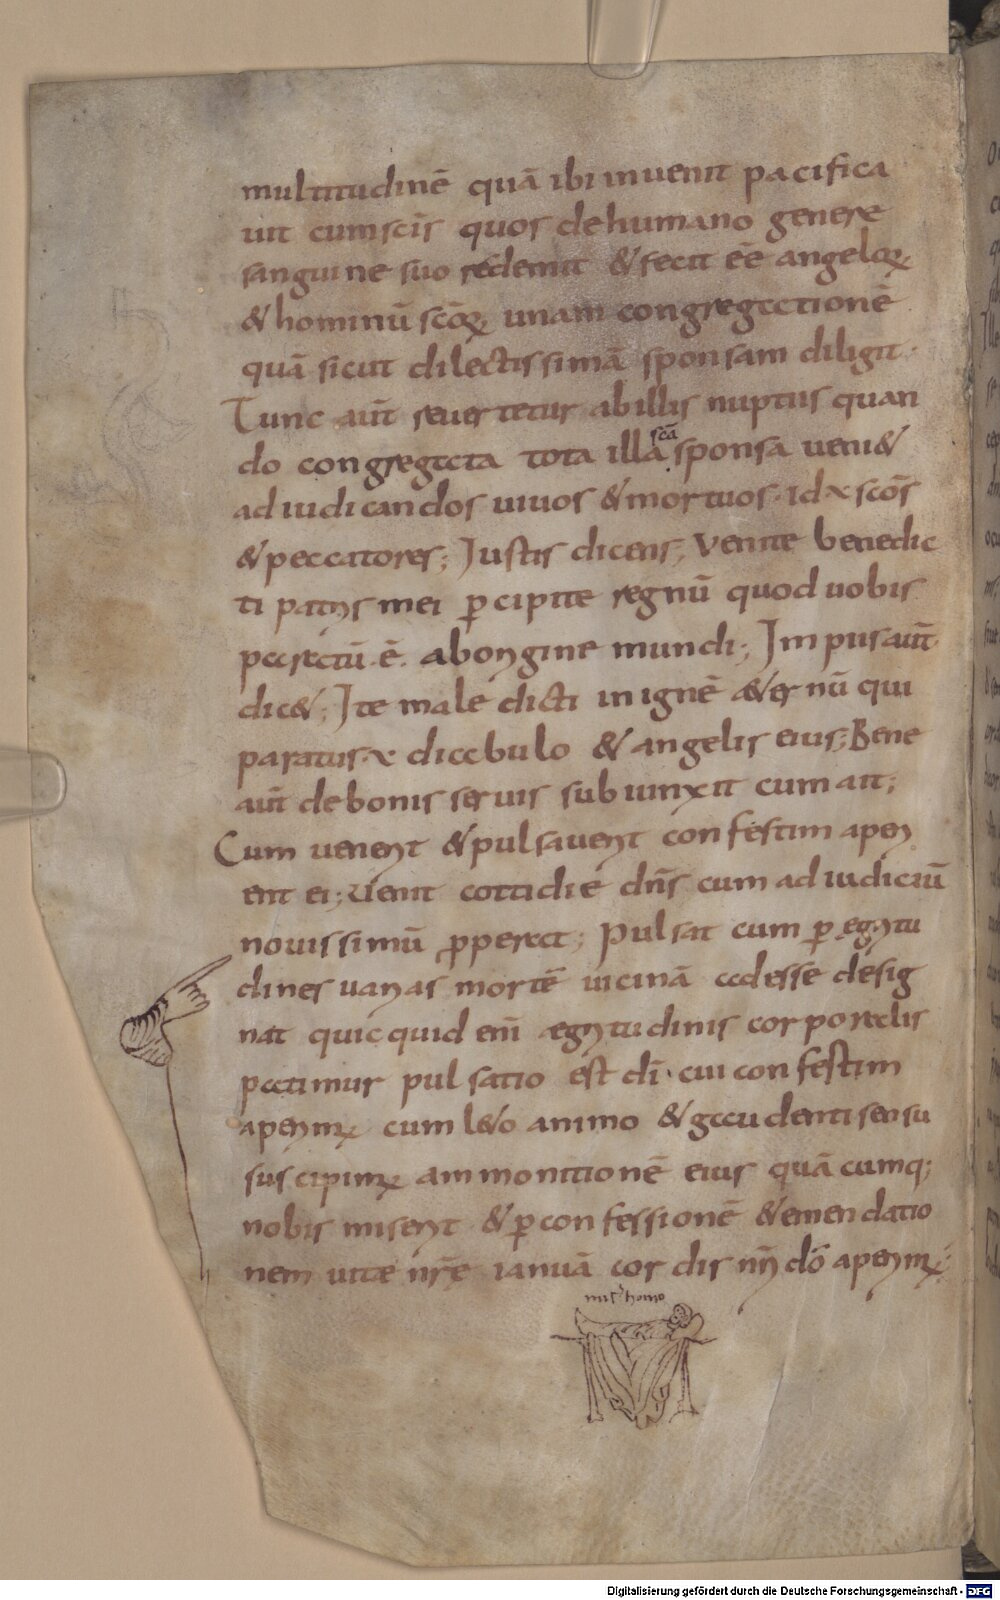 multitudinē quā ibi inuenit pacifica
uit cum scīs quos de humano genere
sanguine suo redemit & fecit eē angeloꝝ
& hominū scōꝝ unam congregationē
quā sicut dilectissimā sponsam diligit.
Tunc aūt reuertetur ab illis nuptiis quan
do congregata tota illa scā sponsa ueni&
ad iudicandos uiuos & mortuos. id ÷ scōs
& peccatores; Iustis dicens; Venite benedic
ti patris mei ꝑcipite regnū quod uobis
paratū .ē. ab origine mundi; Impiis aūt
dic&; Ite maledicti in ignē æ&ernū qui
paratus ÷ diabulo & angelis eius; Bene
aūt de bonis seruis subiunxit cum ait;
Cum uenerit & pulsauerit confestim aperi
ent ei; Uenit cottidie dn̄s cum ad iudiciū
nouissimū ꝓperat; Pulsat cum ꝑ egritu
dines uarias mortē uicinā adesse desig
nat quicquid enī ægritudinis corporalis
patimur pulsatio est dī. cui confestim
aperimꝰ cum l&o animo & gaudenti sensu
suscipimꝰ ammonitionē eius quācumq;
nobis miserit & ꝑ confessionē & emendatio
nem uitæ nr̄ę ianuā cordis nr̄i dō aperimꝰ;
homo
Digitalisierung gefördert durch die Deutsche Forschungsgemeinschaft - DFG